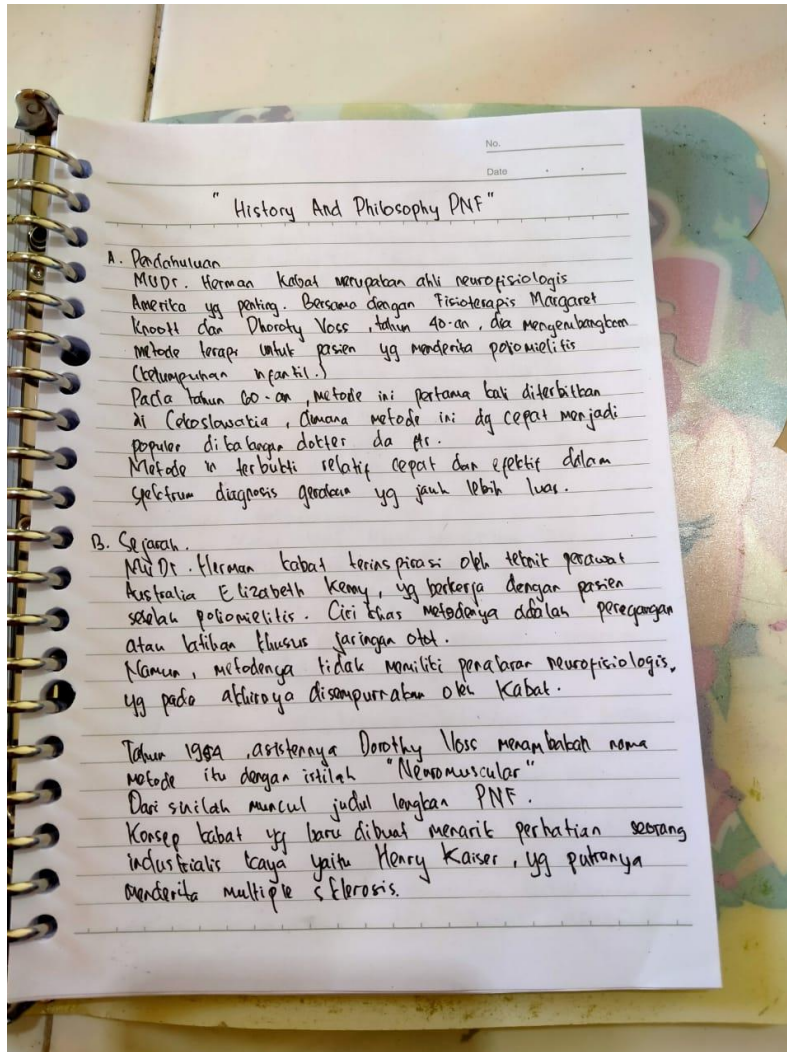 No.
Date
" History And Philosophy PNF "
A. Pendahuluan
MUDr. Herman Kabat merupakan ahli neurofisiologis
Amerika yg penting. Bersama dengan Fisioterapis Margaret
Knoott dan Dhoroty Voss, tahun 40-an, dia mengembangkan
metode terapi untuk pasien yg menderita poliomielitis
(kelumpuhan nfantil.)
Pada tahun 60-an, metode ini pertama kali diterbitkan
di Cekoslowakia, dimana metode ini dg cepat menjadi
populer di kalangan dokter da
Metode in terbukti relatif cepat dan efektif dalam
spektrum diagnosis gerakan yg jauh lebih luas.
B. Sejarah.
MUDr. Herman Kabat terinspirasi oleh teknik perawat
Australia Elizabeth Kenny, yg berkerja dengan pasien
setelah poliomielitis. Ciri khas metodenya adalah peregangan
atau latihan khusus jaringan otot.
Namun, metodenya tidak memiliki penalaran neurofisiologis,
yg pada akhirnya disempurnakan oleh Kabat.
Tahun 1954, asistennya Dorothy Voss menambahkan nama
metode itu dengan istilah "Neuromuscular"
Dari sinilah muncul judul lengkap PNF.
Konsep kabat yg baru dibuat menarik perhatian seorang
industrialis kaya yaitu Henry Kaiser, yg putranya
menderita multiple sklerosis.